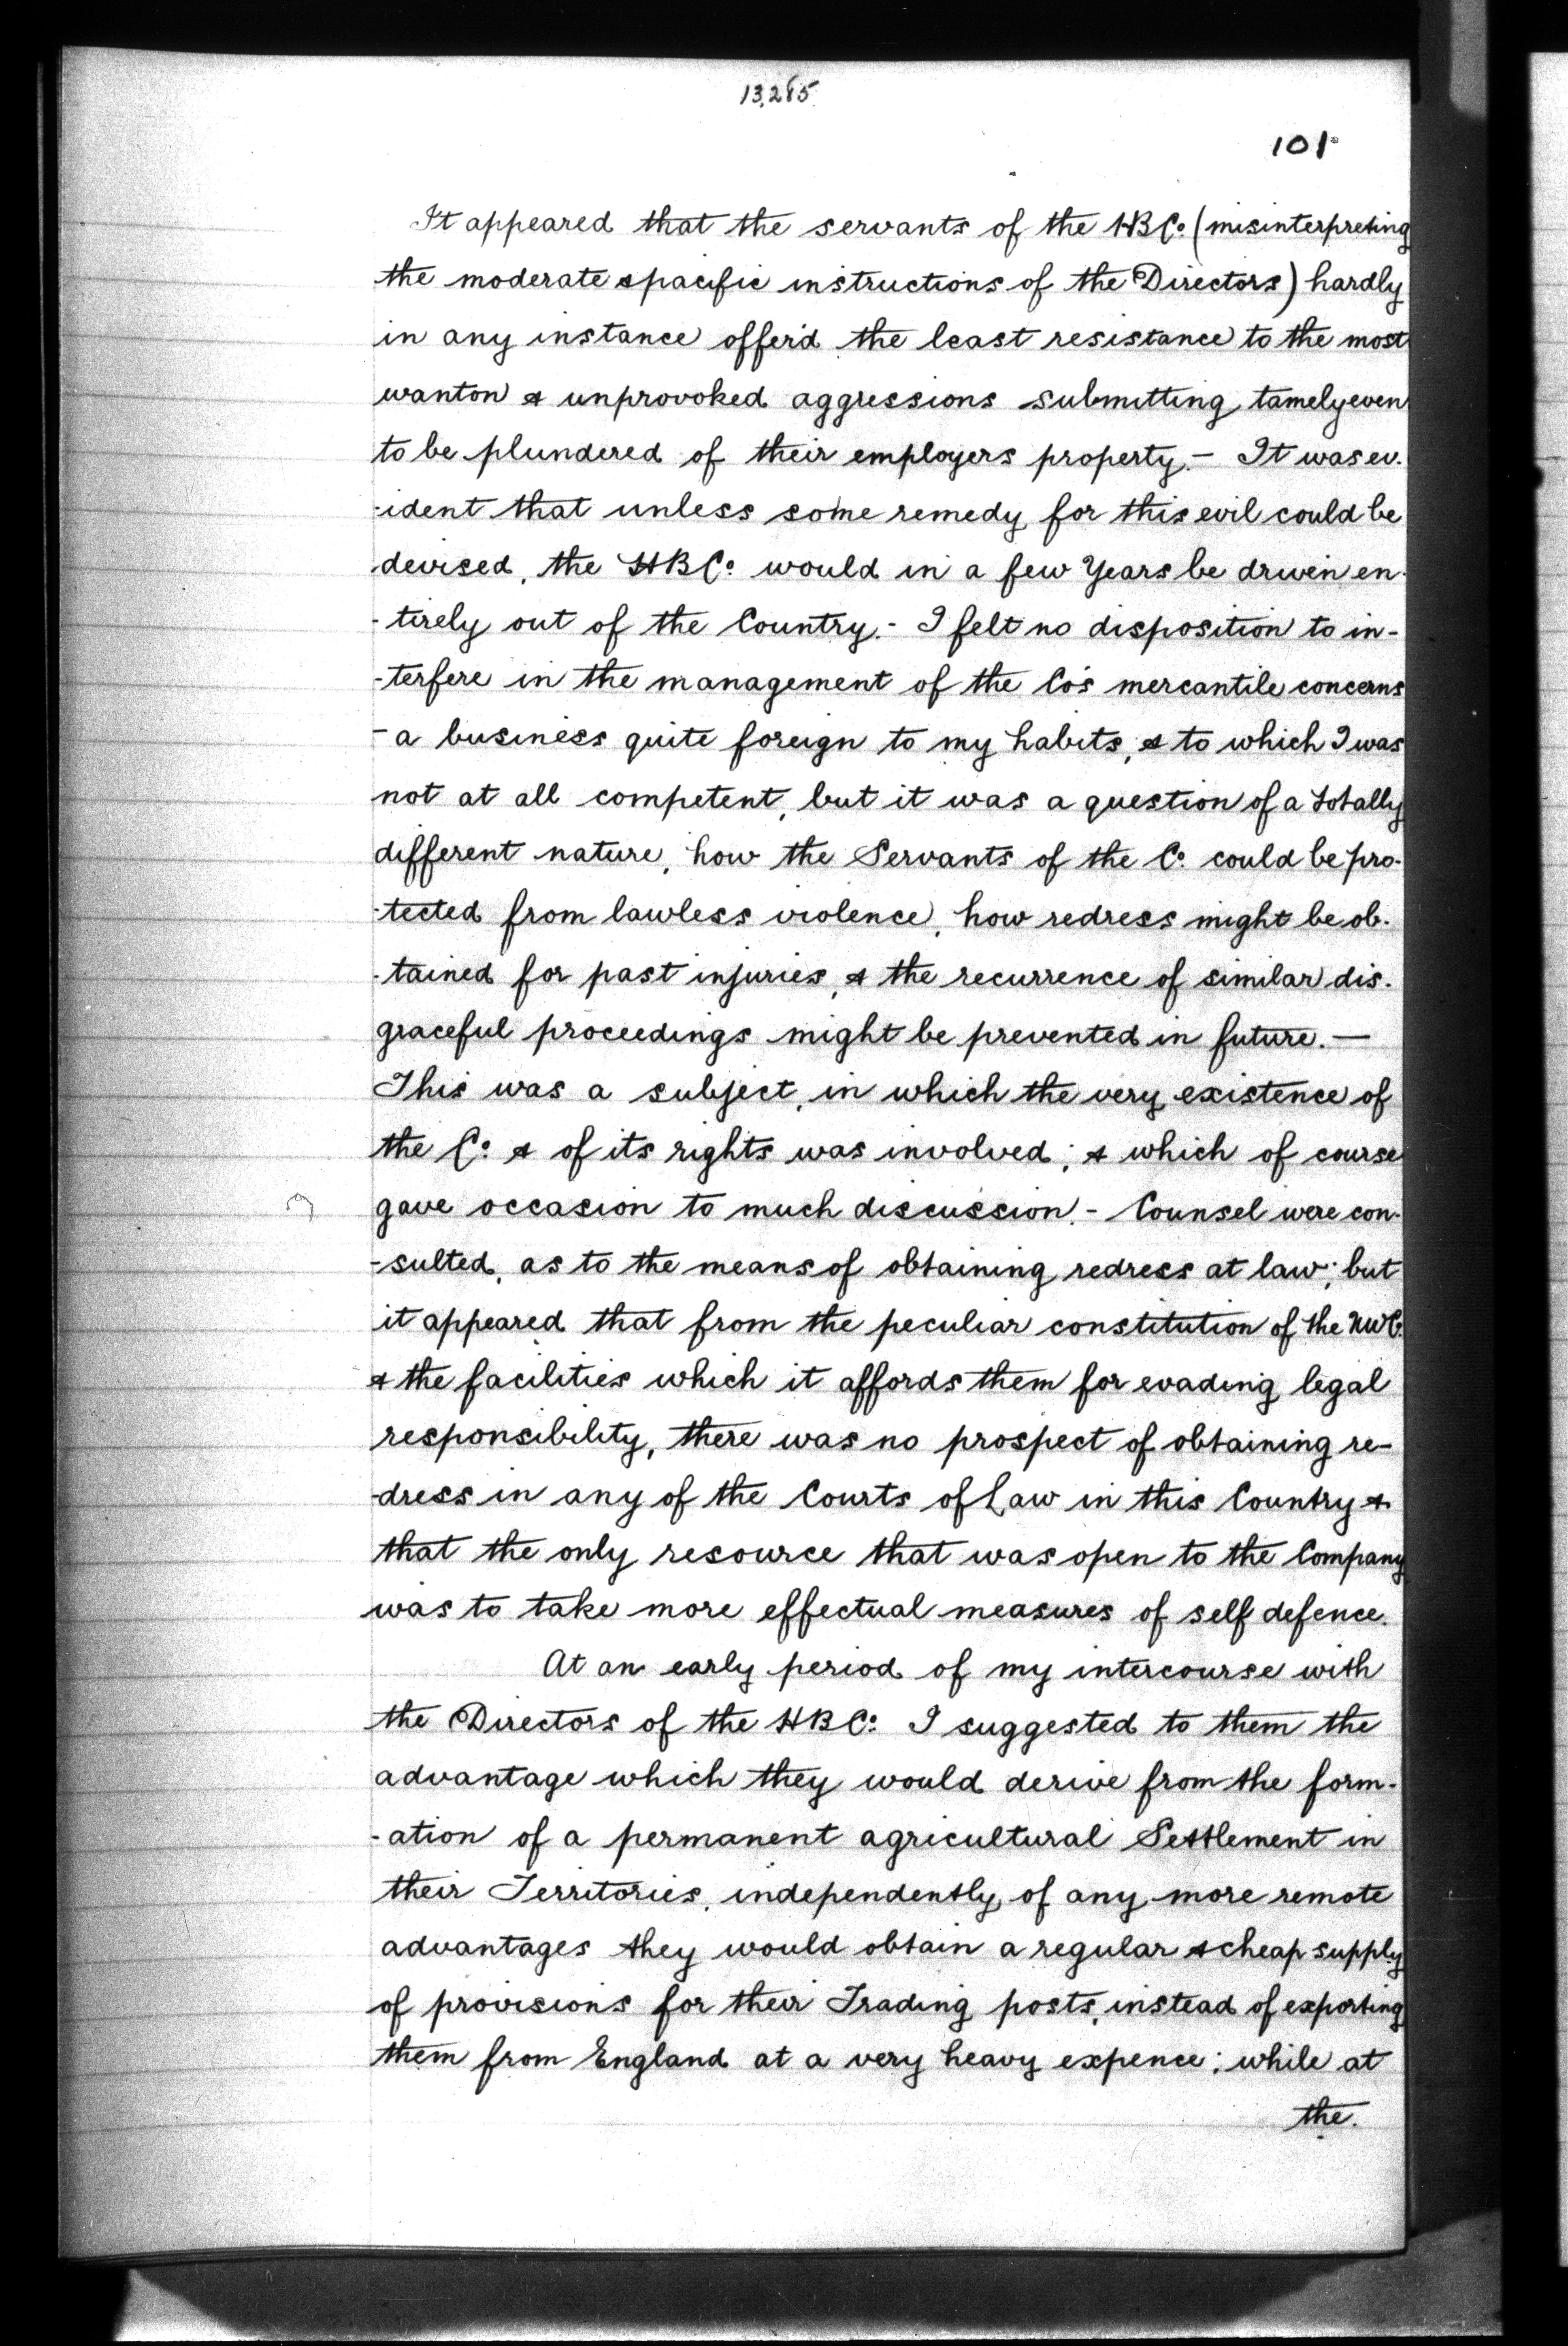 13,285
101
It appeared that the servants of the HBCo. (misinterpreting
the moderate & pacific instructions of the Directors) hardly
in any instance offer'd the least resistance to the most
wanton & unprovoked aggressions submitting tamely even
to be plundered of their employers property.- It was ev-
-ident that unless some remedy for this evil could be
devised, the HBCo. would in a few Years be driven en-
-tirely out of the Country.- I felt no disposition to in-
-terfere in the management of the Co's mercantile concerns
- a business quite foreign to my habits, & to which I was
not at all competent, but it was a question of a totally
different nature, how the Servants of the Co. could be pro-
-tected from lawless violence, how redress might be ob-
-tained for past injuries, & the recurrence of similar dis-
graceful proceedings might be prevented in future.—
This was a subject, in which the very existence of
the Co. & of its rights was involved; & which of course
gave occasion to much discussion.- Counsel were con-
-sulted, as to the means of obtaining redress at law; but
it appeared that from the peculiar constitution of the NWC.
& the facilities which it affords them for evading legal
responsibility, there was no prospect of obtaining re-
-dress in any of the Courts of Law in this Country &
that the only resource that was open to the Company
was to take more effectual measures of self defence.
At an early period of my intercourse with
the Directors of the HBCo. I suggested to them the
advantage which they would derive from the form-
-ation of a permanent agricultural Settlement in
their Territories, independently of any more remote
advantages they would obtain a regular & cheap supply
of provisions for their Trading posts, instead of exporting
them from England at a very heavy expence; while at
the.